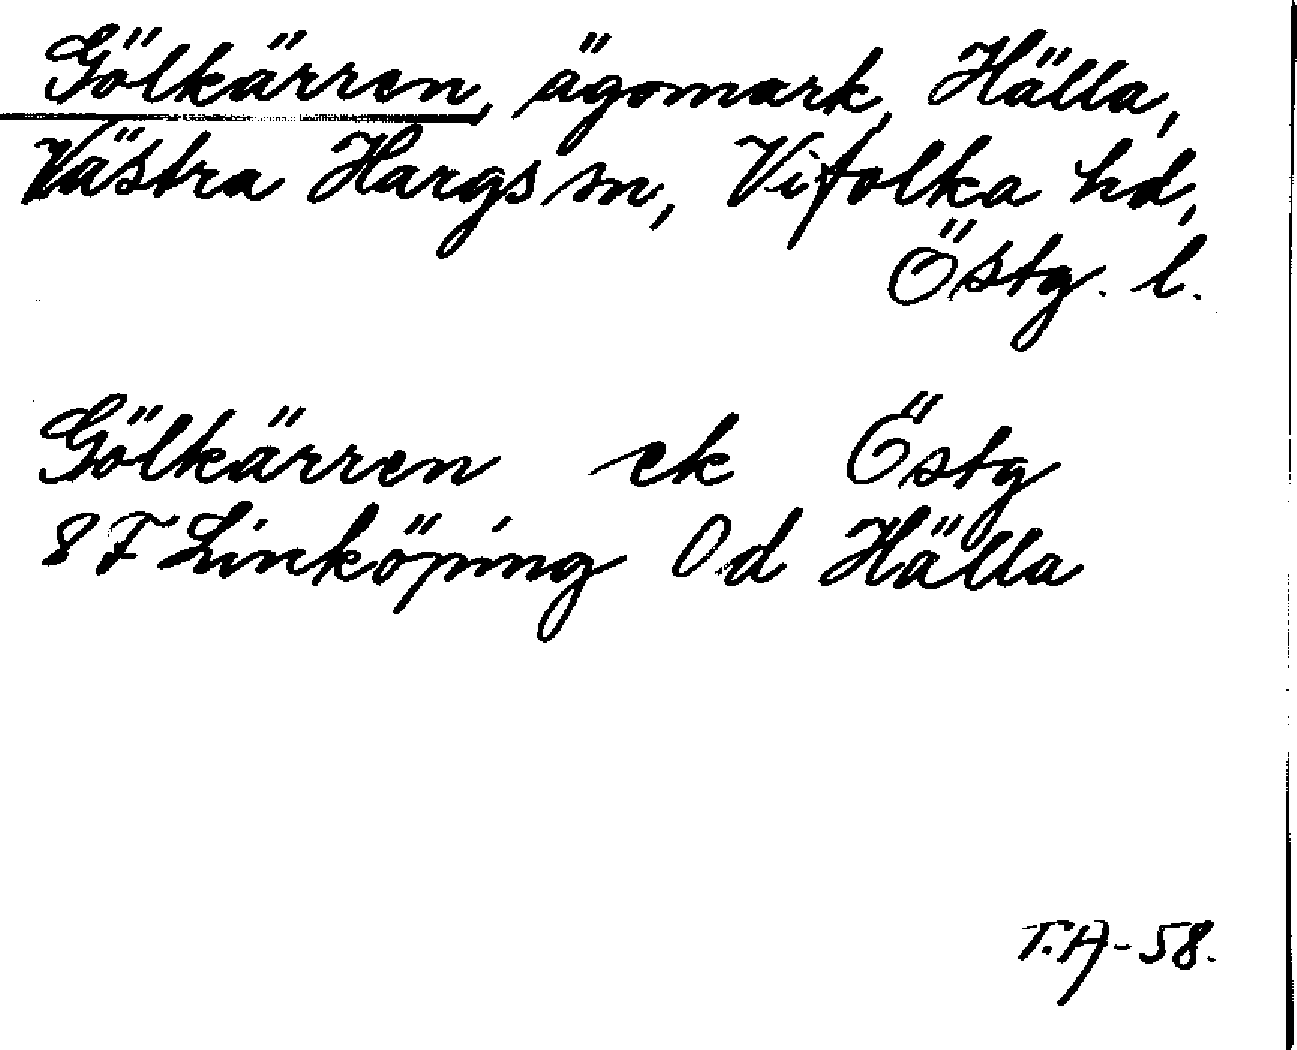 Gölkärren, ägomark, Hälla,
Västra Hargs sn, Vifolka hd,
Östg. l.
Gölkärren ek Östg
8F Linköping 0d Hälla
T.A-58.